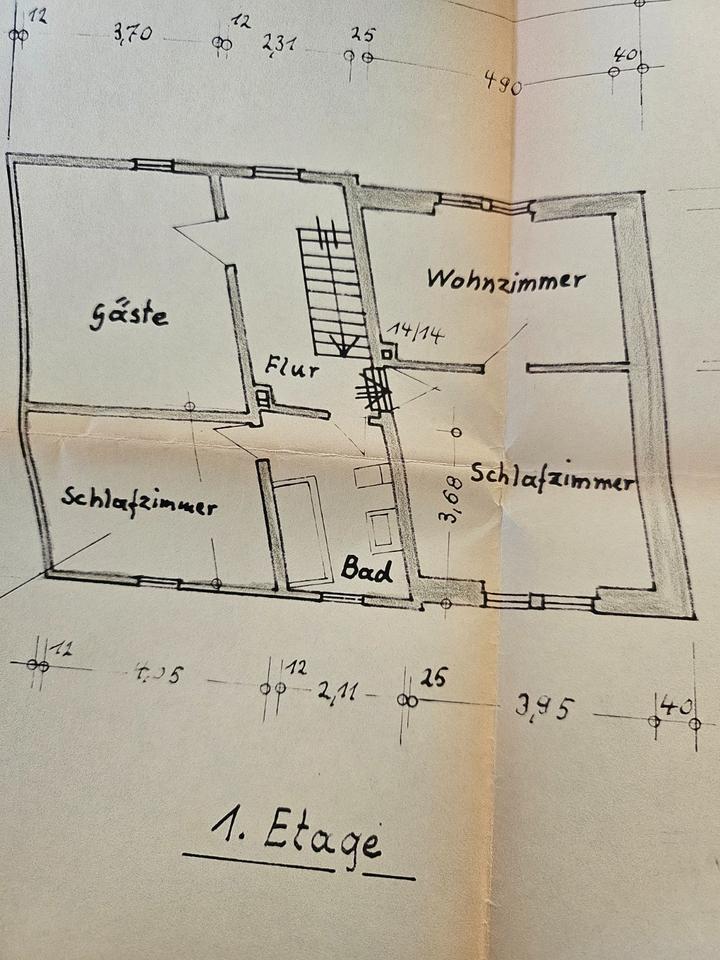 12 3,70 12 2,31 25 490 40
Gäste
Wohnzimmer
14/14
Flur
Schlafzimmer
Schlafzimmer
3,68
Bad
12 12 2,11 25 3,95 40
1. Etage